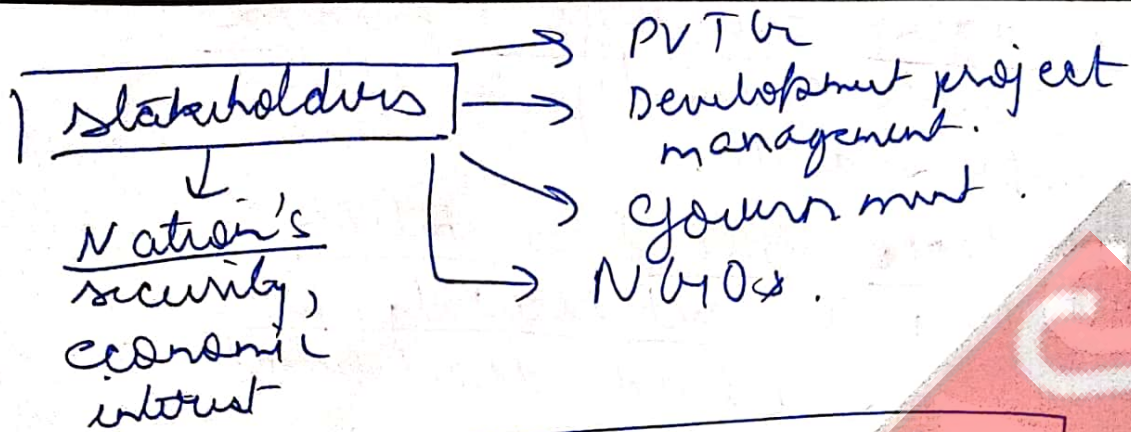 Stakeholders
PVTG
Development project
management.
Government.
NGOs.
Nation's
security,
economic
interest